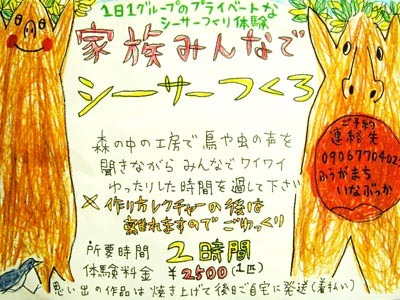 1日1グループのプライベートな
シーサーつくり体験
家族みんなで
シーサーつくろ
森の中の工房で鳥や虫の声を
聞きながら みんなでワイワイ
ゆったりした時間を過して下さい
×作り方レクチャーの後は
離れますので ごゆっくり
所要時間 2時間
体験料金 ¥2500(1匹)
思い出の作品は焼き上げて後日ご自宅に発送(着払い)
ご予約
連絡先
09067704023
ふうがまち
いなぶっか